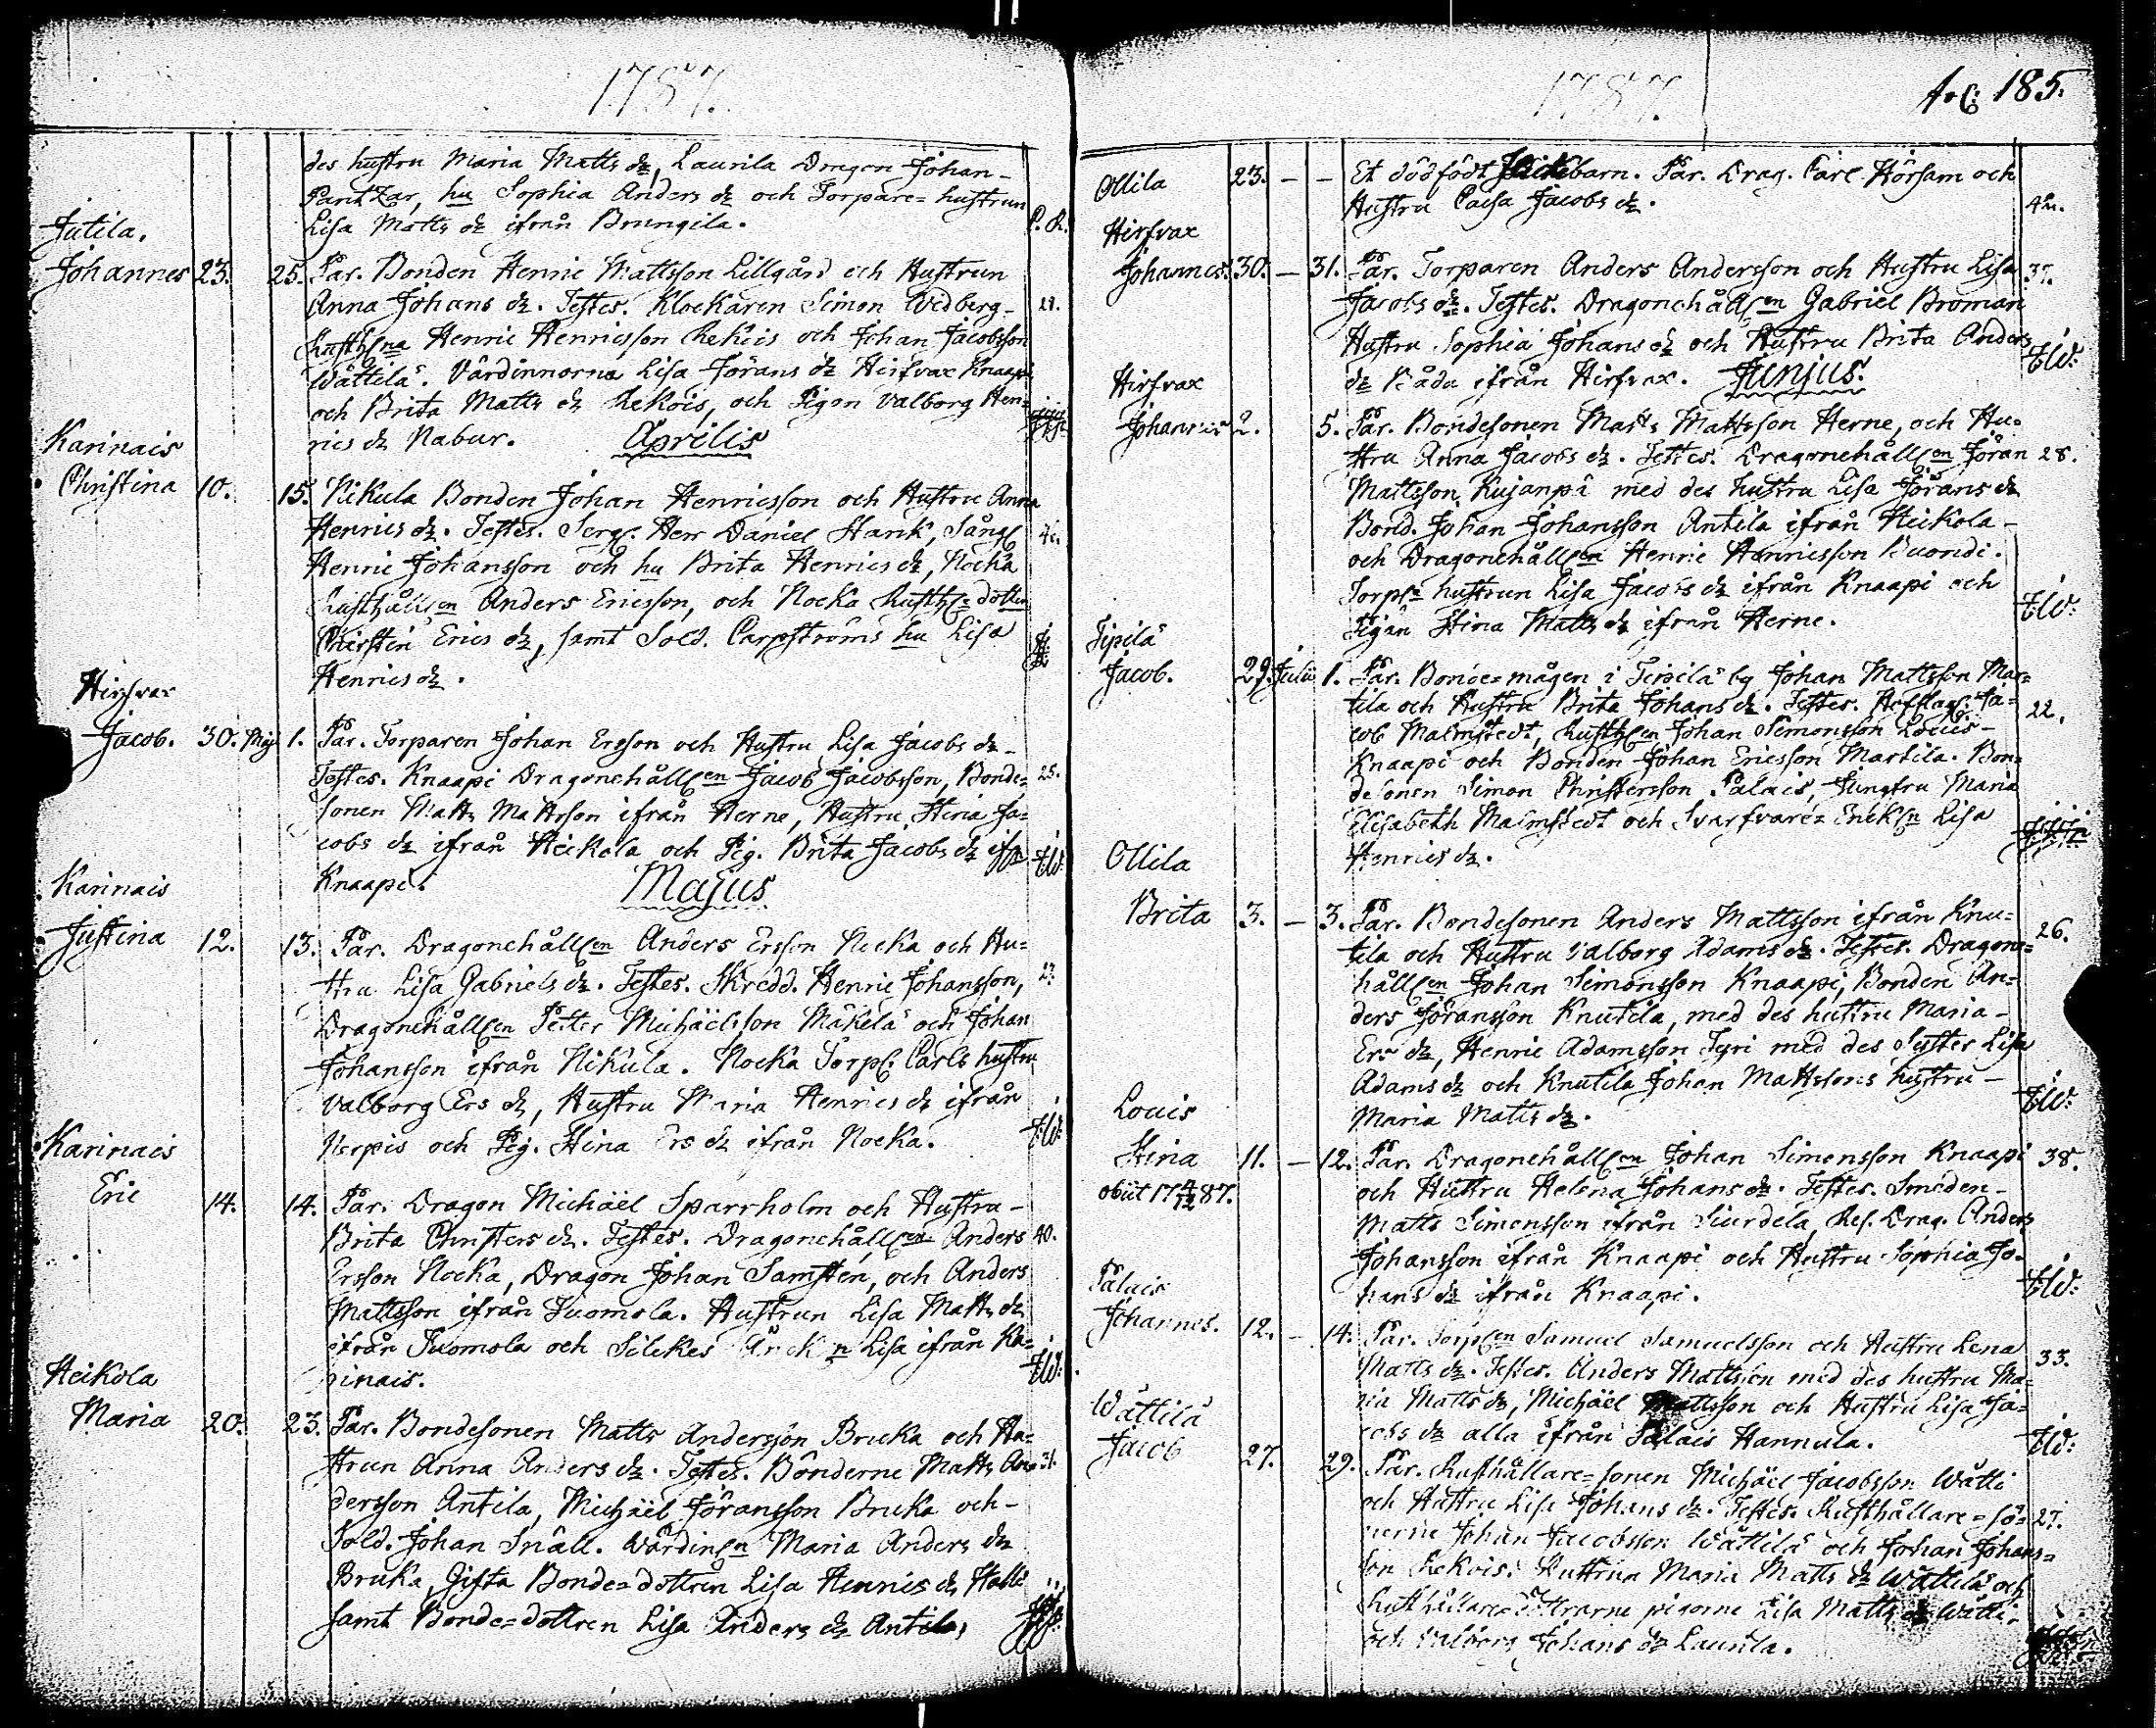 1787.
des hustru Maria Matts dr, Laurila Dragon Johan
Pantzar, hu Sophia Anders dr och Torpare=hustrun
Lisa Matts dr ifrån Brungila.
P. R.
Jutila.
Johannes 23. 25. Par. Bonden Henric Mattsson Lillgård och Hustrun
Anna Johans dr. Testes. Klockaren Simon Wedberg 28.
Henric Henricsson Rekois och Johan Jacobsson
Wättilä. Värdinnorna Lisa Jörans dr Hirfvax Knaapi
och Brita Matts dr Rekois, och Pigan Valborg Hen=
rics dr Nabur. Aprilis
Karinais
Christina 10. 15. Nikula Bonden Johan Henricsson och Hustru Anna
Henrics dr. Testes. Serg. Herr Daniel Hank,
Henric Johansson och hu Brita Henrics dr, Nocka
Rusthållen Anders Ericsson, och Nocka dottren
Chirstin Erics dr, samt Sold. Carpströms hu Lisa
Henrics dr.
Hirfvax
Jacob. 30. Maj 1. Par. Torparen Johan Ersson och Hustru Lisa Jacobs dr
Testes. Knaapi Dragonehållen Jacob Jacobsson, Bonde= 25.
sonen Matts Mattsson ifrån Herne, Hustru Stina Ja=
cobs dr ifrån Heikola och Pig. Brita Jacobs dr ifr
Knaapi. Majus
Karinais
Justina 12. 13. Par. Dragonehållen Anders Ersson Nocka och Hu=
stru Lisa Gabriels dr. Testes. Skrädd. Henric Johansson,
Dragonehållen Petter Michäelsson Mäkelä och Johan
Johansson ifrån Nikula. Nocka Torp. Carls hustru
Valborg Ers dr, Hustru Maria Henrics dr ifrån
och Pig. Stina Ers dr ifrån Nocka.
Karinais
Eric 14. 14. Par. Dragon Michäel Sparrholm och Hustru
Brita Christers dr. Testes. Dragonehållen Anders 40.
Ersson Nocka, Dragon Johan Samstén, och Anders
Mattsson ifrån Tuomola. Hustrun Lisa Matts dr
ifrån Tuomola och Silckes Lisa ifrån Ka=
rinais.
Heikola
Maria 20. 23. Par. Bondesonen Matts Andersson Bruka och Hu=
strun Anna Anders dr. Testes. Bönderne Matts An= 31.
dersson Antila, Michäel Jöransson Bruka och
Sold. Johan Snäll. Wärdinn Maria Anders dr
Bruka, Gifta Bonde=dottren Lisa Henrics dr
samt Bonde=dottren Lisa Anders dr Antila,
1787. 185.
Ollila 23. – – Et dödfödt barn. Par. Drag. Carl Hörsam och
Hustru Caisa Jacobs dr.
Hirfvax
Johannes. 30. – 31. Par. Torparen Anders Andersson och Hustru Lisa 37.
Jacobs dr. Testes. Dragonehållen Gabriel Broman
Hustru Sophia Johans dr och Hustru Brita Anders
dr båda ifrån Hirfvax. Junius.
Hirfvax
Johannes 2. 5. Par. Bondesonen Matts Mattsson Herne, och Hu=
stru Anna Jacobs dr. Testes. Dragonehållen Jöran 28.
Mattsson Kujanpä med des hustru Lisa Jörans dr
Bond. Johan Johansson Antila ifrån Heikola
och Dragonehållen Henric Henricsson Buondi.
Torp hustrun Lisa Jacobs dr ifrån Knaapi och
Pigan Stina Matts dr ifrån Herne.
Jacob. 29. Julii 1. Par. Bonde=mågen i by Johan Mattsson Mar=
tila och Hustru Brita Johans dr. Testes. Ja= 22.
cob Malmstedt, Johan Simonsson Louis
Knaapi och Bonden Johan Ericsson Martila. Bon=
desonen Simon Christersson Palais, Jungfru Maria
Elisabeth Malmstedt och Svarfvare= Enck Lisa
Henrics dr.
Ollila
Brita 3. – 3. Par. Bondesonen Anders Mattsson ifrån Knu=
tila och Hustru Valborg Adams dr. Testes. Dragone= 26.
hållen Johan Simonsson Knaapi, Bonden An=
ders Jöransson Knutila, med des hustru Maria
Ers dr, Henric Adamsson Tyri med des Syster Lisa
Adams dr och Knutila Johan Mattssons hustru
Maria Matts dr.
Louis
Stina 11. – 12. Par. Dragonehållen Johan Simonsson Knaapi 38.
obiit och Hustru Helena Johans dr. Testes. Smeden
Matts Simonsson ifrån Siurdela, Res. Drag. Anders
Johansson ifrån Knaapi och Hustru Sophia Jo=
hans dr ifrån Knaapi.
Palais
Johannes. 12. – 14. Par. Samuel Samuelsson och Hustru Lena
Matts dr. Testes. Anders Mattsson med des hustru Ma= 33.
ria Matts dr, Michäel Mattsson och Hustru Lisa Ja=
cobs dr alla ifrån Palais Hannula.
Wättilä
Jacob 27. 29. Par. Rusthållare=sonen Michäel Jacobsson Wätti
och Hustru Lisa Johans dr. Testes. Rusthållare=sö= 27.
nerne Johan Jacobsson Wättilä och Johan Johans=
son Rekois. Hustrun Maria Matts dr Wättilä och
Rusthållare döttrarne pigorne Lisa Matts dr Wätti
och Valborg Johans dr Laurila.